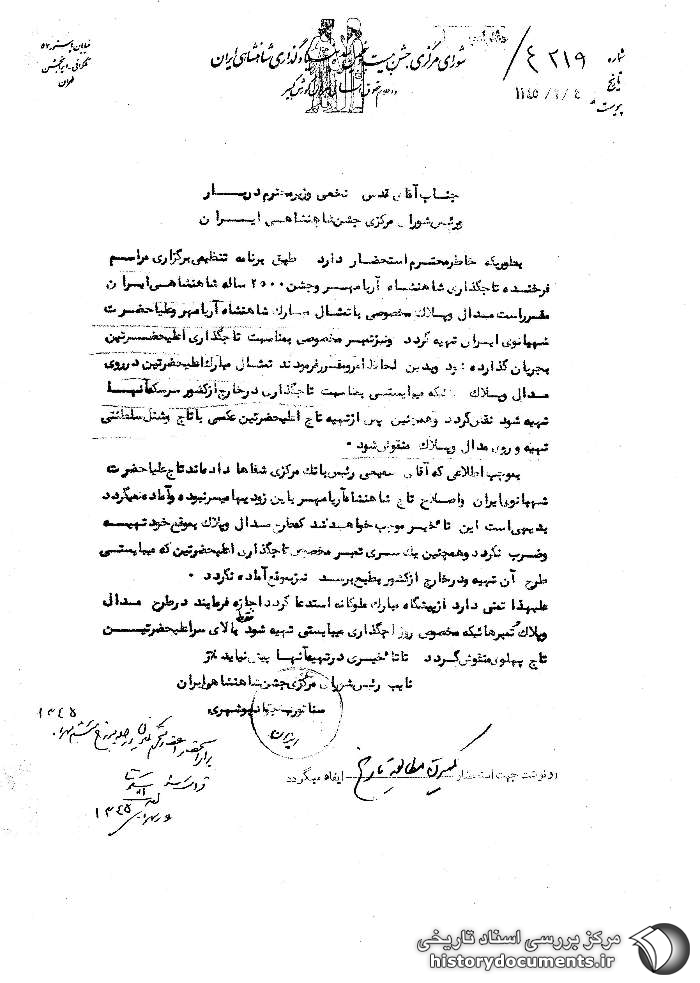 شماره ۴۲۱۹ /
تاریخ
پیوست
خیابان
تهران
شورای مرکزی جشن بیست بنیادگذاری شاهنشاهی ایران
جناب آقای قدس نخعی وزیر محترم دربار
ورئیس شورای مرکزی جشن شاهنشاهی ایران
بطوریکه خاطر محترم استحضار دارد طبق برنامه تنظیمی برگزاری مراسم
فرخنده تاجگذاری شاهنشاه آریامهر وجشن ۲۵۰۰ ساله شاهنشاهی ایران
مقرر است مدال وپلاک مخصوصی با تمثال مبارک شاهنشاه آریامهر وعلیاحضرت
شهبانوی ایران تهیه گردد ونیز تمبر مخصوصی بمناسبت تاجگذاری اعلیحضرتین
بجریان گذارده شود وبدین لحاظ امر ومقرر فرمودند تمثال مبارک اعلیحضرتین در روی
مدال وپلاک هائیکه میبایستی بمناسبت تاجگذاری در خارج از کشور سرسکه آنها
تهیه شود نقش گردد وهمچنین پس از تهیه تاج اعلیحضرتین عکسی با تاج وشنل سلطنتی
تهیه و روی مدال وپلاک منقوش شود .
بموجب اطلاعی که آقای سمیعی رئیس بانک مرکزی شفاها داده‌اند تاج علیاحضرت
شهبانوی ایران واصلاح تاج شاهنشاه آریامهر باین زودیها میسر نبوده وآماده نمیگردد
بدیهی است این تاخیر موجب خواهد شد که طرح مدال وپلاک بموقع خود تهیه
وضرب نگردد وهمچنین یک سری تمبر مخصوص تاجگذاری اعلیحضرتین که میبایستی
طرح آن تهیه ودر خارج از کشور بطبع برسد نیز بموقع آماده نگردد .
علیهذا تمنی دارد از پیشگاه مبارک ملوکانه استدعا گردد اجازه فرمایند در طرح مدال
وپلاک وتمبرهائیکه مخصوص روز تاجگذاری میبایستی تهیه شود فقط بالای سر اعلیحضرتین
تاج پهلوی منقوش گردد تا تاخیری در تهیه آنها پیش نیاید
نایب رئیس شورای مرکزی جشن شاهنشاهی ایران
سناتور بوشهری
رونوشت جهت استحضار کمیته مطالعه تاریخ ایفاد میگردد
۱۳۴۵
۱۳۴۵
مرکز بررسی اسناد تاریخی
historydocuments.ir